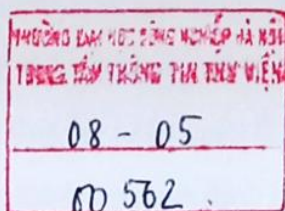 TRƯỜNG ĐẠI HỌC CÔNG NGHIỆP HÀ NỘI
TRUNG TÂM THÔNG TIN THƯ VIỆN
08 - 05
562